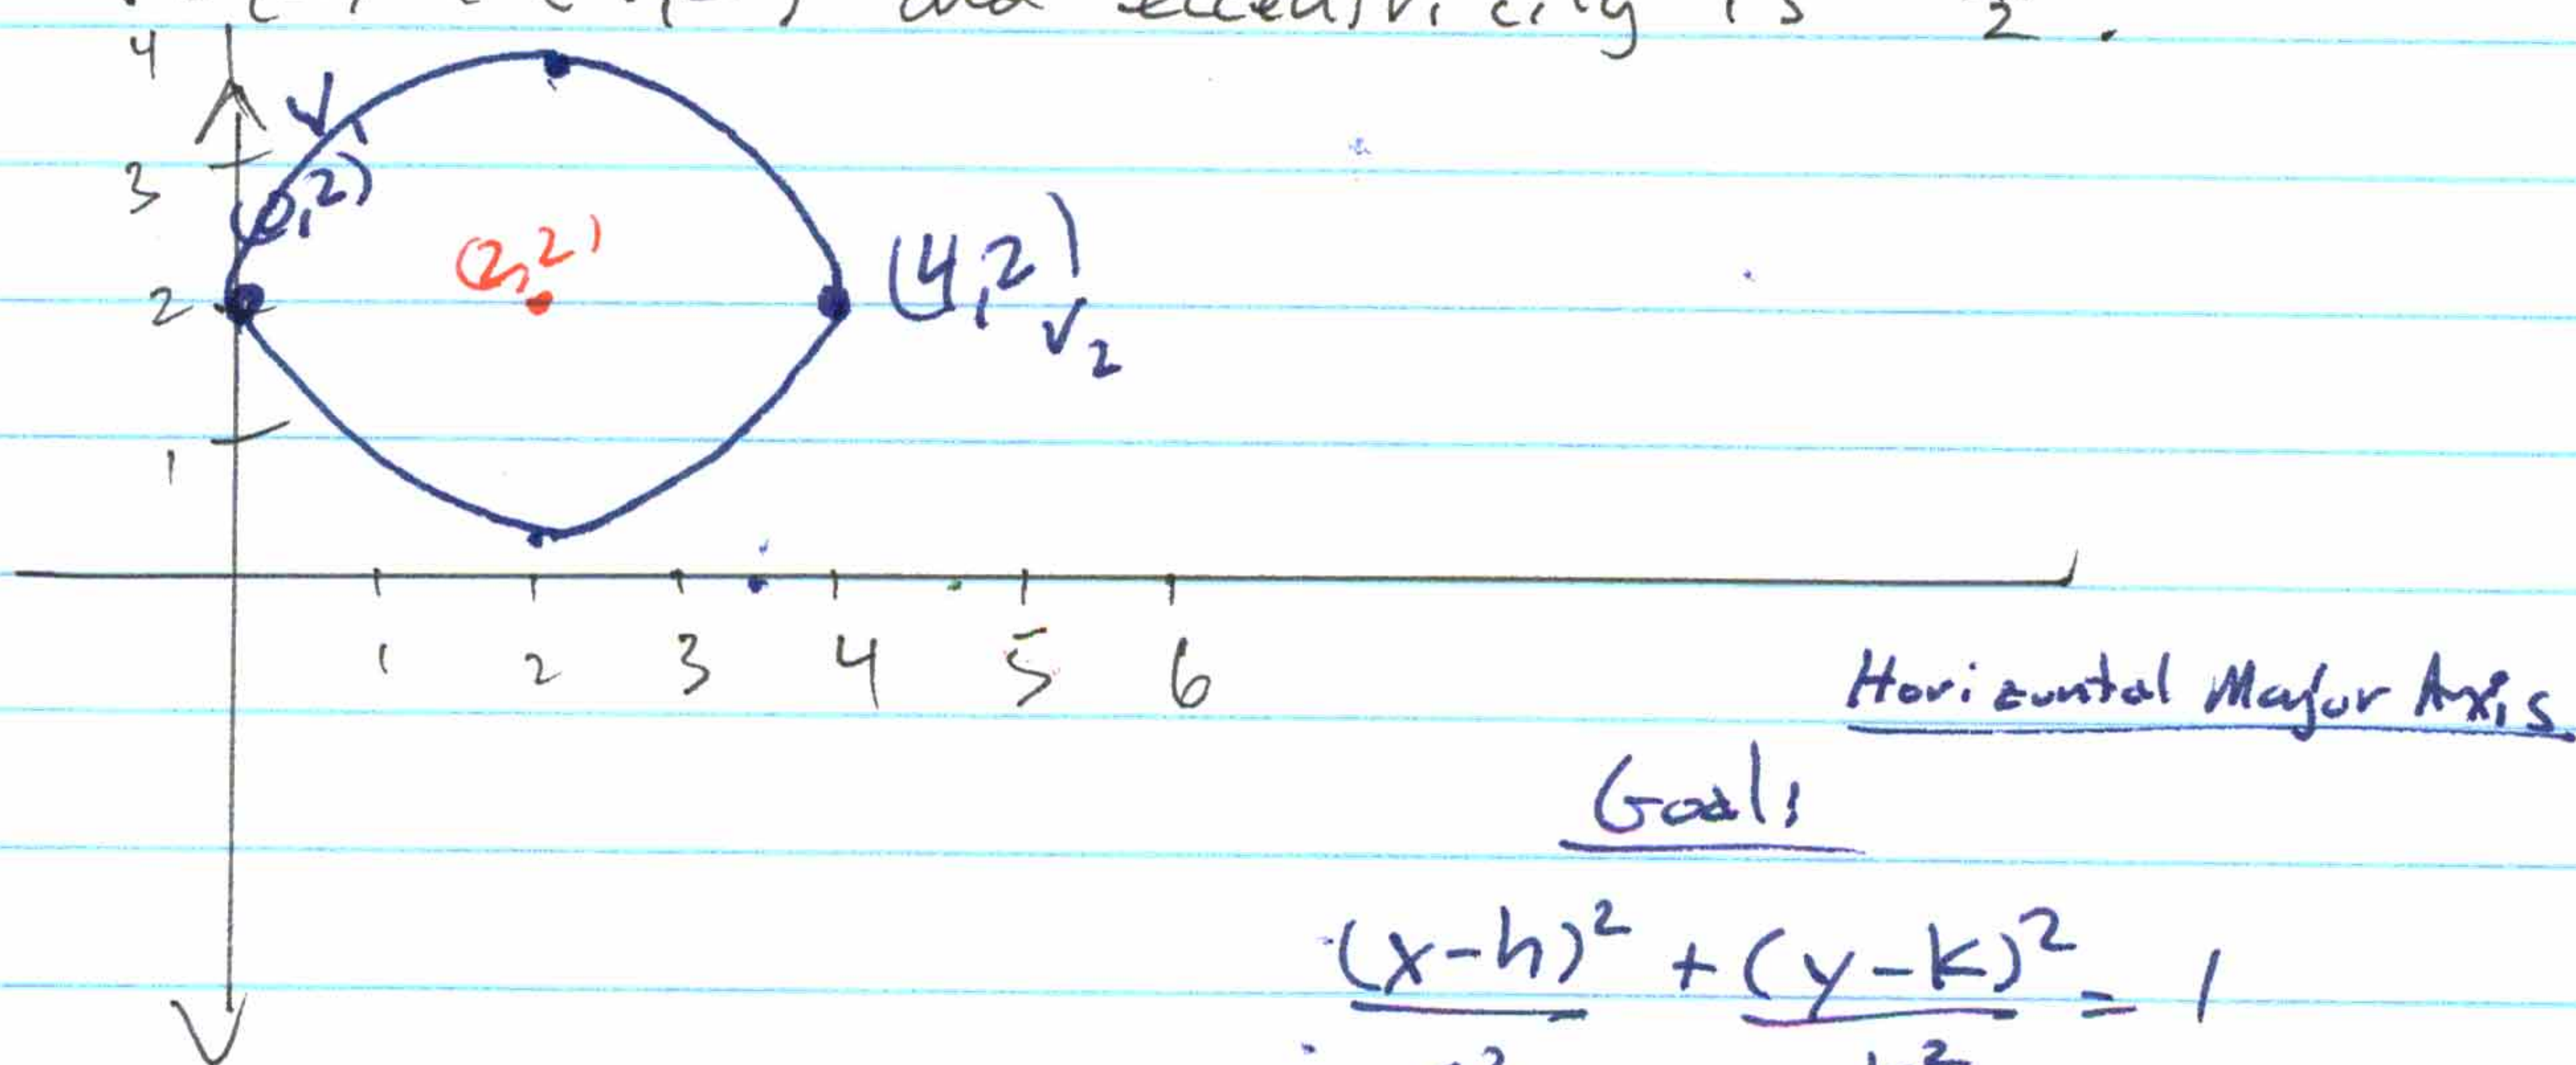 and eccentricity is 2.
4
V1
3
(0,2)
(2,2)
(4,2)
2
V2
1
1 2 3 4 5 6
Horizontal Major Axis
Goal:
(x-h)² + (y-k)² = 1